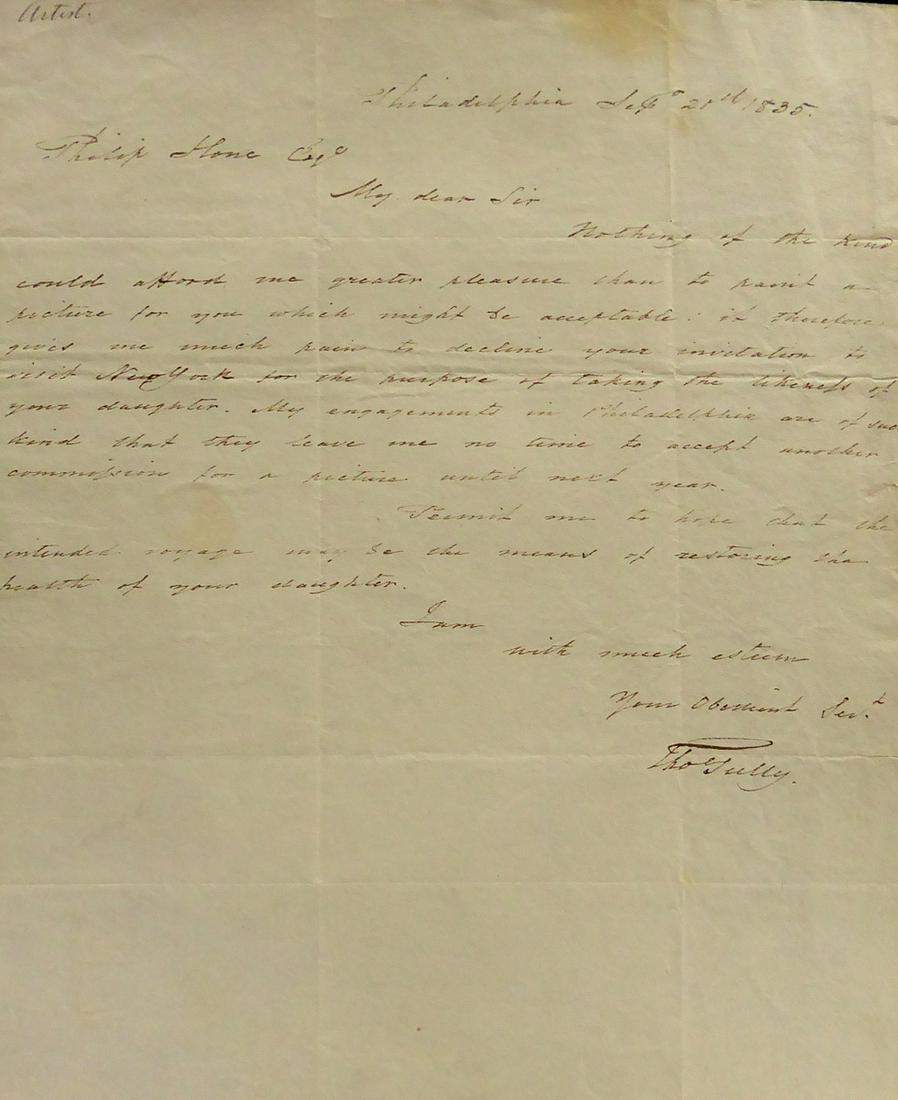 Artist.
Philadelphia Sepr 20th 1835.
Philip Hone Esqr
My dear Sir
Nothing of the kind
could afford me greater pleasure than to paint a
picture for you which might be acceptable: it therefore
gives me much pain to decline your invitation to
visit New York for the purpose of taking the likeness of
your daughter. My engagements in Philadelphia are of such
kind that they leave me no time to accept another
commission for a picture until next year.
Permit me to hope that the
intended voyage may be the means of restoring the
health of your daughter.
I am
with much esteem
Your Obedient Servt
Tho Sully.